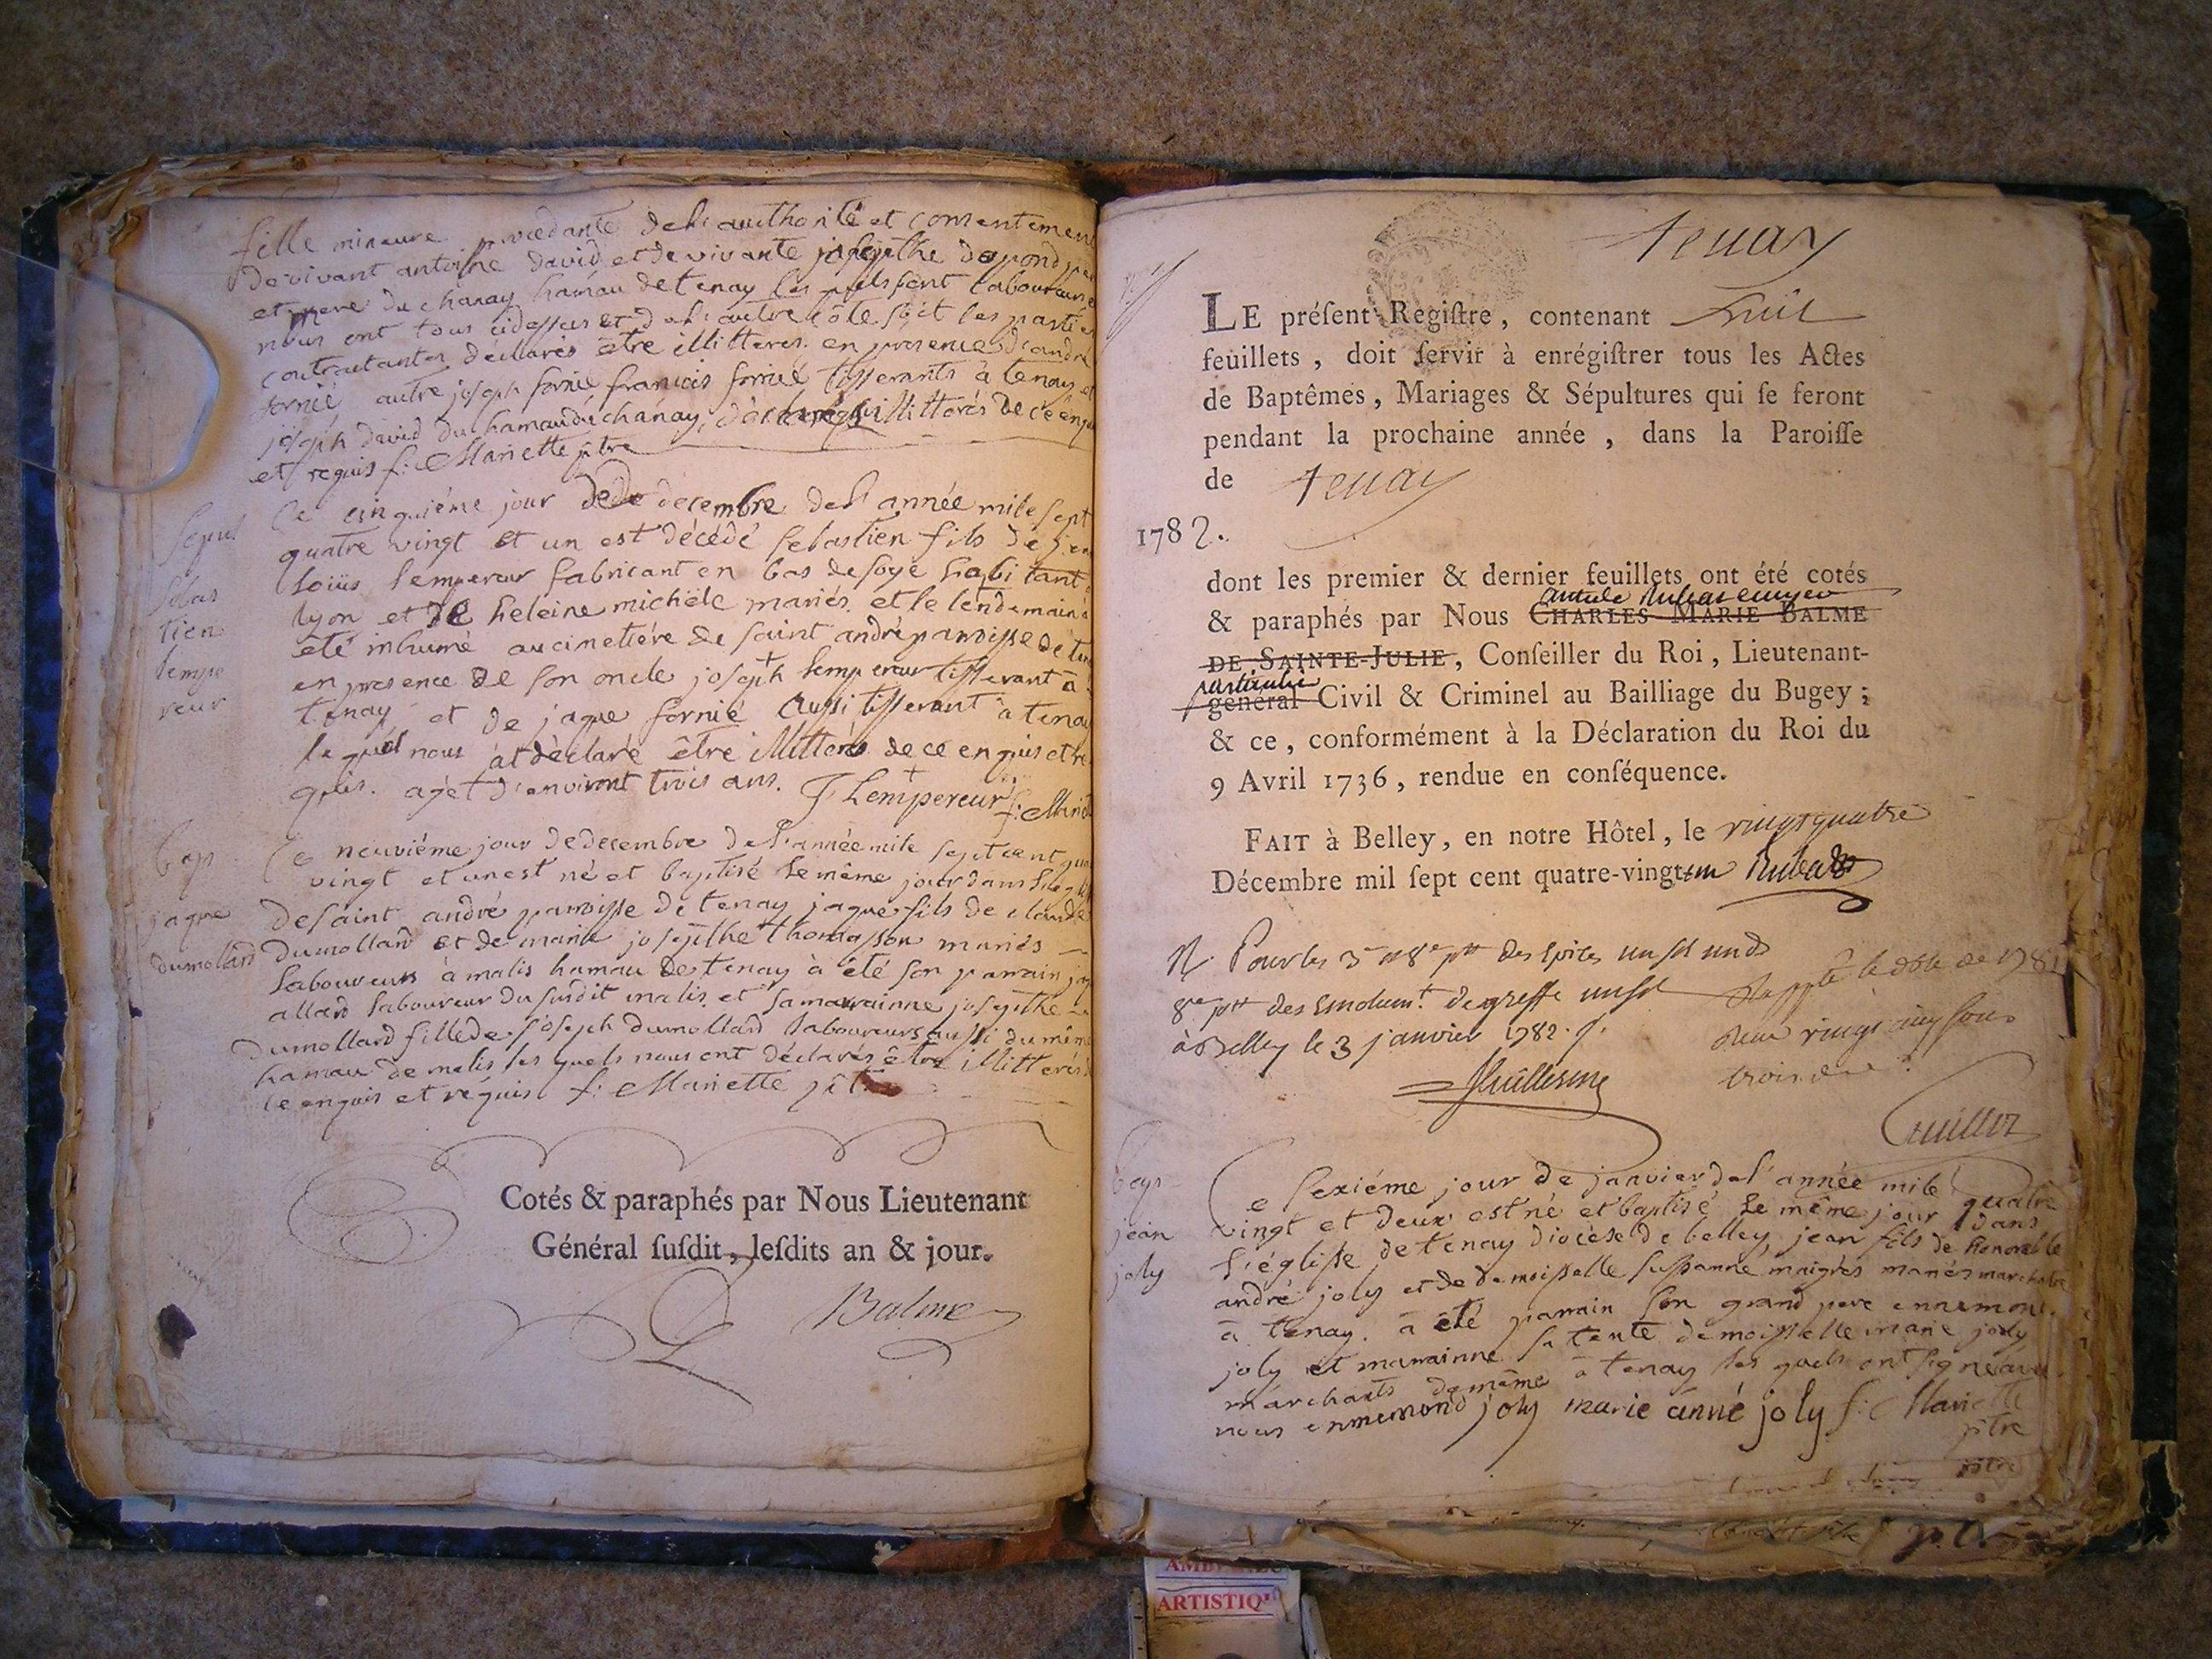 fille mineure procedante de l'authorité et consentement
de vivant antoine david et de vivante josephe
et mere du chanay hamau de tenay les quels sont laboureurs
nous ont tous cidessus et de l'autre côte soit les parties
contractantes déclarés être illitteres en presence d'andré
fornié autre joseph fornié françois fornié tisserants à tenay et
joseph david du hamau du chanay, illitterés de ce enquis
et requis f: Mariette ptre
Sepul
sebas
tien
lempe
reur
Ce cinquiéme jour de decembre de l'année mile sept
quatre vingt et un est décédé sebastien fils de jean
loiüs lemperour fabricant en bas de soye habitant
lyon et de heleine michele mariés et le lendemain à
eté inhumé au cimetiére de saint andré paroisse de ten
en presence de son oncle joseph lemperour tisserant à
tenay et de jaque fornié aussi tisserant a tenay
lequel nous at déclaré être illitterés de ce enquis et re
quis. agét d'environt trois ans. J Lempereur f: Mariette
bap
jaque
dumollard
Ce neuviéme jour de decembre de l'année mile sept cent qua
vingt et un est né et baptisé le même jour dans l'eglis
de saint andré paroisse de tenay jaque fils de claude
dumollard et de marie josephe thomasson mariés
laboureurs à malis hamau de tenay à été son parrain
allard laboureur du susdit malis et sa marainne josephe
dumollard fille de joseph dumollard laboureurs aussi du même
hamau de malis les quels nous ont déclarés être illitterés
ce enquis et réquis f: Mariette ptre
Cotés & paraphés par Nous Lieutenant
Général ſuſdit, leſdits an & jour.
Balme
tenay
LE préſent Regiſtre, contenant huit
feuillets, doit ſervir à enrégiſtrer tous les Actes
de Baptêmes, Mariages & Sépultures qui ſe feront
pendant la prochaine année, dans la Paroiſſe
de tenay
1782.
dont les premier & dernier feuillets ont été cotés
& paraphés par Nous CHARLES-MARIE BALME
DE SAINTE-JULIE, Conſeiller du Roi, Lieutenant-
particulier
général Civil & Criminel au Bailliage du Bugey;
& ce, conformément à la Déclaration du Roi du
9 Avril 1736, rendue en conſéquence.
FAIT à Belley, en notre Hôtel, le vingt quatre
Décembre mil ſept cent quatre-vingt un
R. Pour les 3 et 8e ptt des Epices un sol un d
8e ptt des Emolumt de greffe un sol
à Belley le 3 janvier 1782.
le dble de 1781
vingt cinq sous
trois
bap
jean
joly
Ce sexiéme jour de janvier de l'année mile quatre
vingt et deux est né et baptisé le même jour dans
l'églisse de tenay diocèse de belley, jean fils de honorable
andré joly et de demoisselle sussanne maigres mariés marchands
à tenay. à été parrain son grand pere ennemond
joly et marrainne sa tente demoisselle marie joly
marchants de même à tenay les quels ont signé avec
nous ennemond joly marie anné joly f: Mariette
ptre
AMB
ARTISTIQ